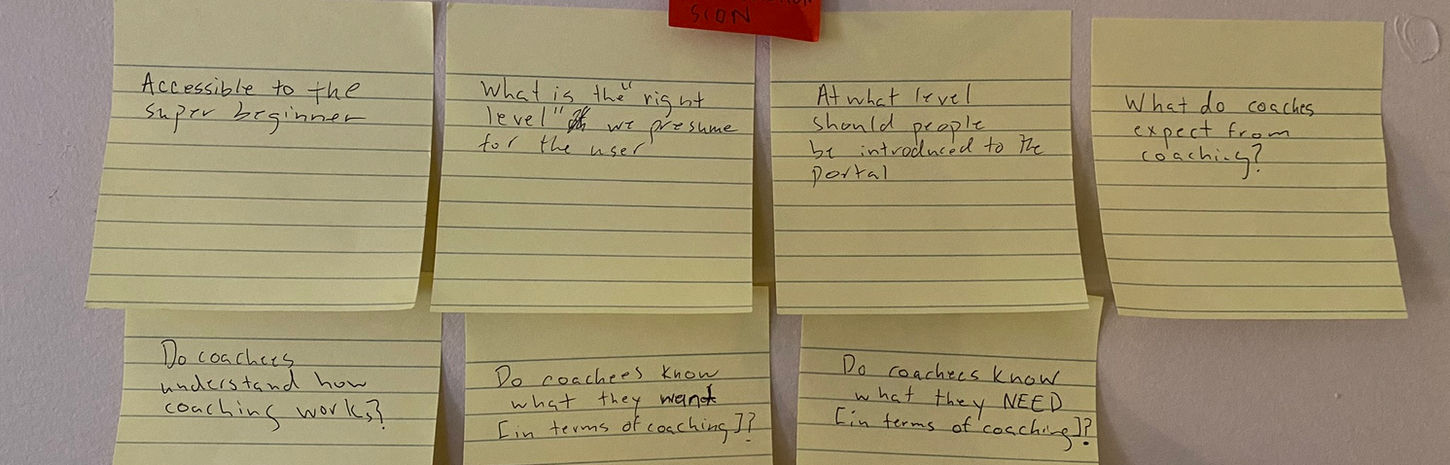 SION
Accessible to the
super beginner
What is the "right
level" we presume
for the user
At what level
should people
be introduced to the
portal
What do coaches
expect from
coaching?
Do coachees
understand how
coaching works?
Do coachees know
what they want
[in terms of coaching]?
Do coachees know
what they NEED
[in terms of coaching]?